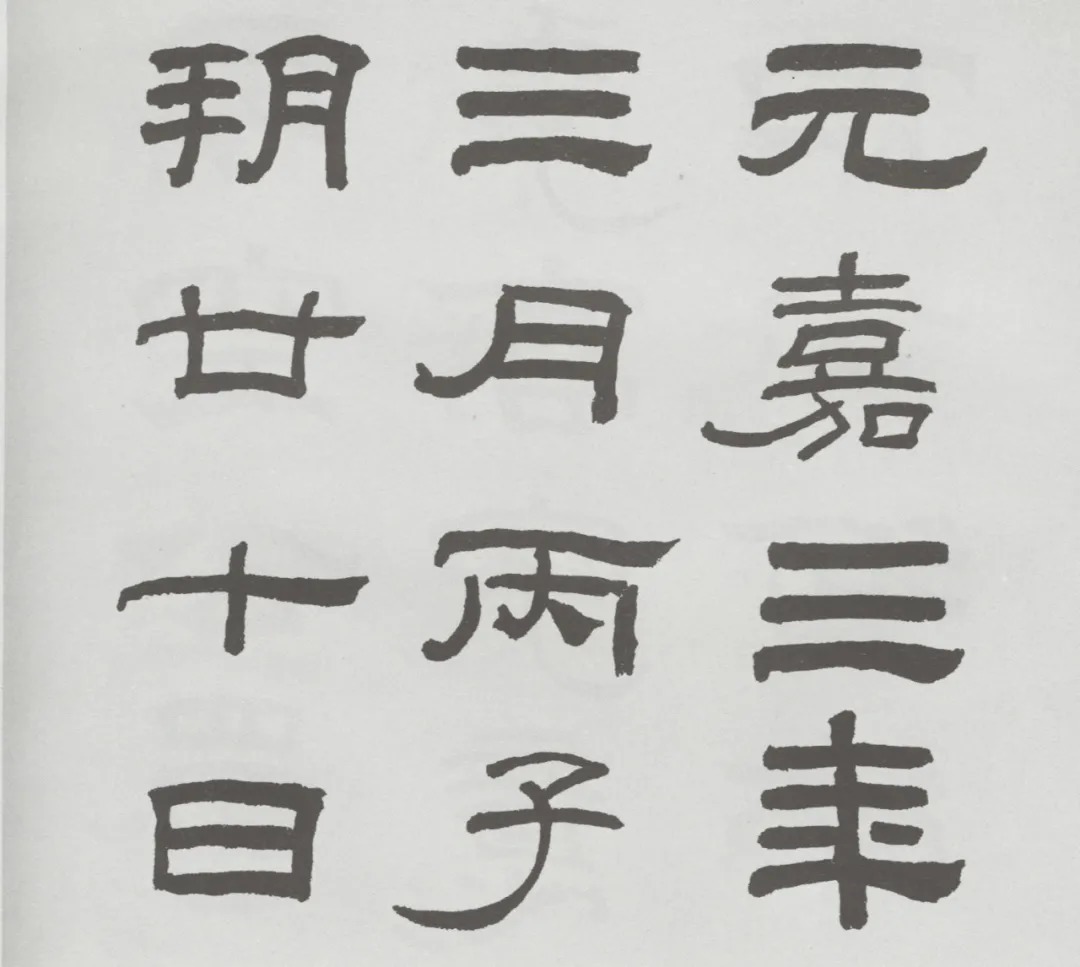 元嘉三年
三月丙子
朔廿十日